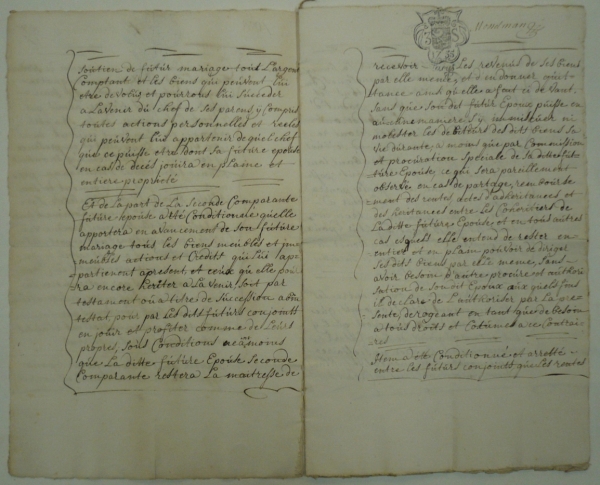 soutien de futur mariage tout l'argent
Comptant et les biens qui pouront lui
être devolus et pouront lui succeder
a L'avenir du chef de ses parens, y compris
toutes actions personnelles et reeles
qui peuvent lui appartenir de quel chef
que ce puisse etre dont sa future epouse
en cas de deces jouira en plaine et
entiere proprieté
Et de la part de La Seconde Comparante
future epouse a été Conditionné quelle
apportera en avancement de son future
mariage tous les biens meubles et jm
meubles actions et Credit qui Lui ap
partienent apresent et ceux qu'elle pour
ra encore heriter a L'avenir soit par
testament ou a titre de Succession abin
testat, pour par les dits futurs conjoints
en jouir et profiter comme de Leurs
propres, sous Conditions neàmoins
que La ditte future Epouse seconde
Comparante restera La maitresse de
recevoir Les revenus de ses biens
par elle meme, et d'en donner quit
tance ainsi qu'elle a fait ci de vant,
sans que son dit futur Epoux puisse en
aucune maniere, s'y immiscuer ni
molester les debiteurs des dits biens sa
vie durante, a moins que par Commission
et procuration speciale de sa ditte fu
ture Epouse, ce qui sera pareillement
observé en cas de partage, renbourse
ment des rentes, actes d'adheritances et
des heritances entre les Cohéritiers de
La ditte future Epouse et en tous autres
cas esquels elle entend de rester en
entier et en plain pouvoir de diriger
ses dits biens par elle meme, sans
avoir besoin d'autre procure et authori
sation de son dit Epoux aux quels fins
il declare de L'authoriser par La pre
sente, derogeant en tant que de besoin
a tous Droits et Coutumes a ce Contrai
res
Item a été Conditionné et arretté
entre les futurs conjoints que les rentes